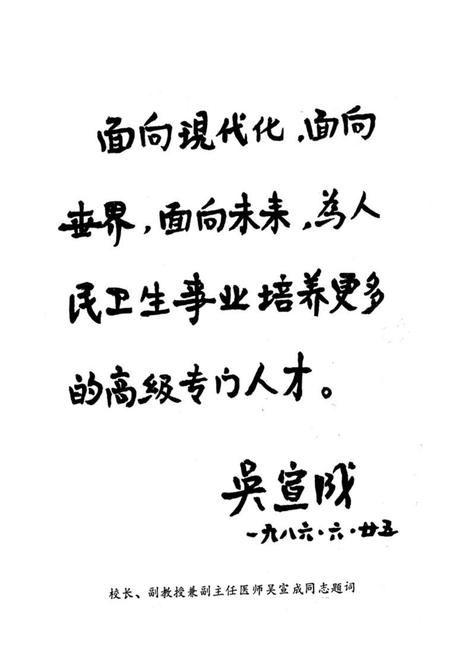 面向現代化,面向
世界,面向未来,為人
民卫生事业培养更多
的高级专门人才。
吳宣成
一九八六·六·廿五
校长、副教授兼副主任医师吴宣成同志题词